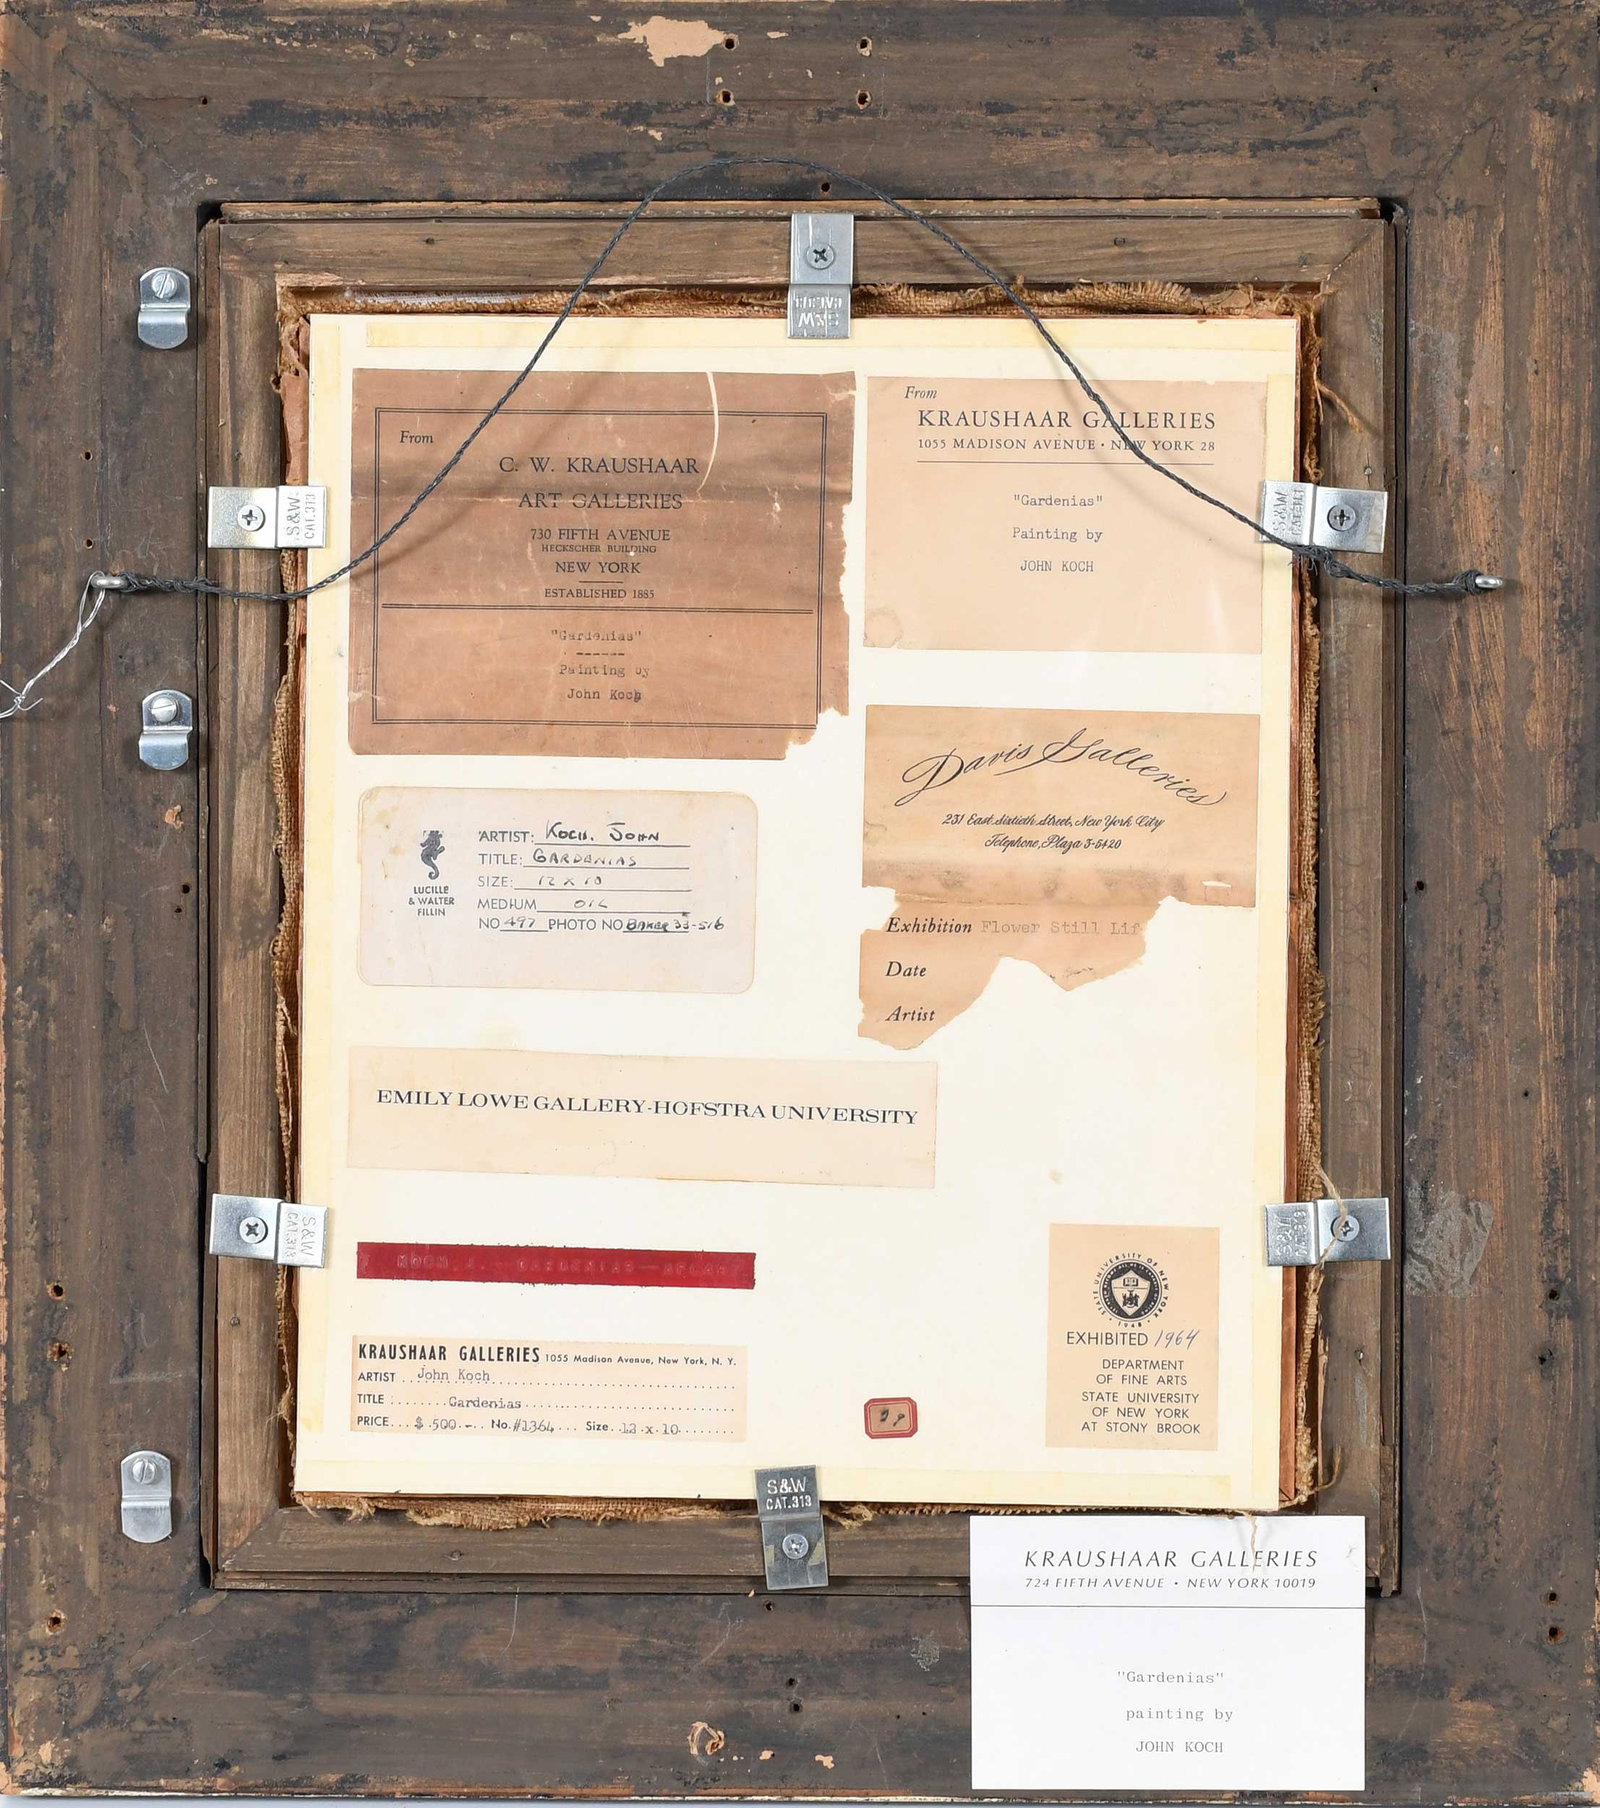 S&W
CAT.313
From
C. W. KRAUSHAAR
ART GALLERIES
730 FIFTH AVENUE
HECKSCHER BUILDING
NEW YORK
ESTABLISHED 1885
"Gardenias"
Painting by
John Koch
From
KRAUSHAAR GALLERIES
1055 MADISON AVENUE · NEW YORK 28
"Gardenias"
Painting by
JOHN KOCH
S&W
CAT.313
S&W
CAT.313
Davis Galleries
231 East Sixtieth Street, New York City
Telephone, Plaza 3-6420
Exhibition Flower Still Lif
Date
Artist
LUCILLE
& WALTER
FILLIN
ARTIST: KOCH. JOHN
TITLE: GARDENIAS
SIZE: 12 x 10
MEDIUM OIL
NO 497 PHOTO NO BAKER 33-516
EMILY LOWE GALLERY-HOFSTRA UNIVERSITY
S&W
CAT.313
S&W
CAT.313
KOCH, J. - GARDENIAS
KRAUSHAAR GALLERIES 1055 Madison Avenue, New York, N. Y.
ARTIST John Koch
TITLE Gardenias
PRICE $ 500.- No. #1364 Size 12 x 10
STATE UNIVERSITY OF NEW YORK
1948
EXHIBITED 1964
DEPARTMENT
OF FINE ARTS
STATE UNIVERSITY
OF NEW YORK
AT STONY BROOK
S&W
CAT.313
KRAUSHAAR GALLERIES
724 FIFTH AVENUE · NEW YORK 10019
"Gardenias"
painting by
JOHN KOCH